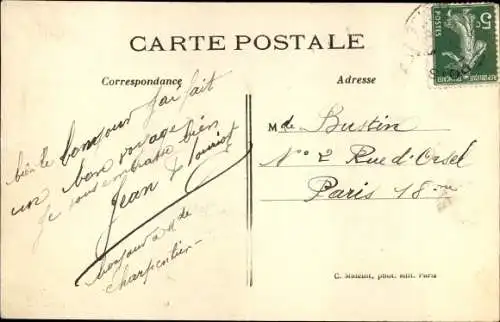 CARTE POSTALE
Correspondance
Adresse
bien le bonjour j'ai fait
un bon voyage
Je vous embrasse bien
Jean
bonjour a Mde
charpentier
Mde Bustin
No 2 Rue d'Orsel
Paris 18me
C. Malcuit, phot. édit. Paris
5c
POSTES